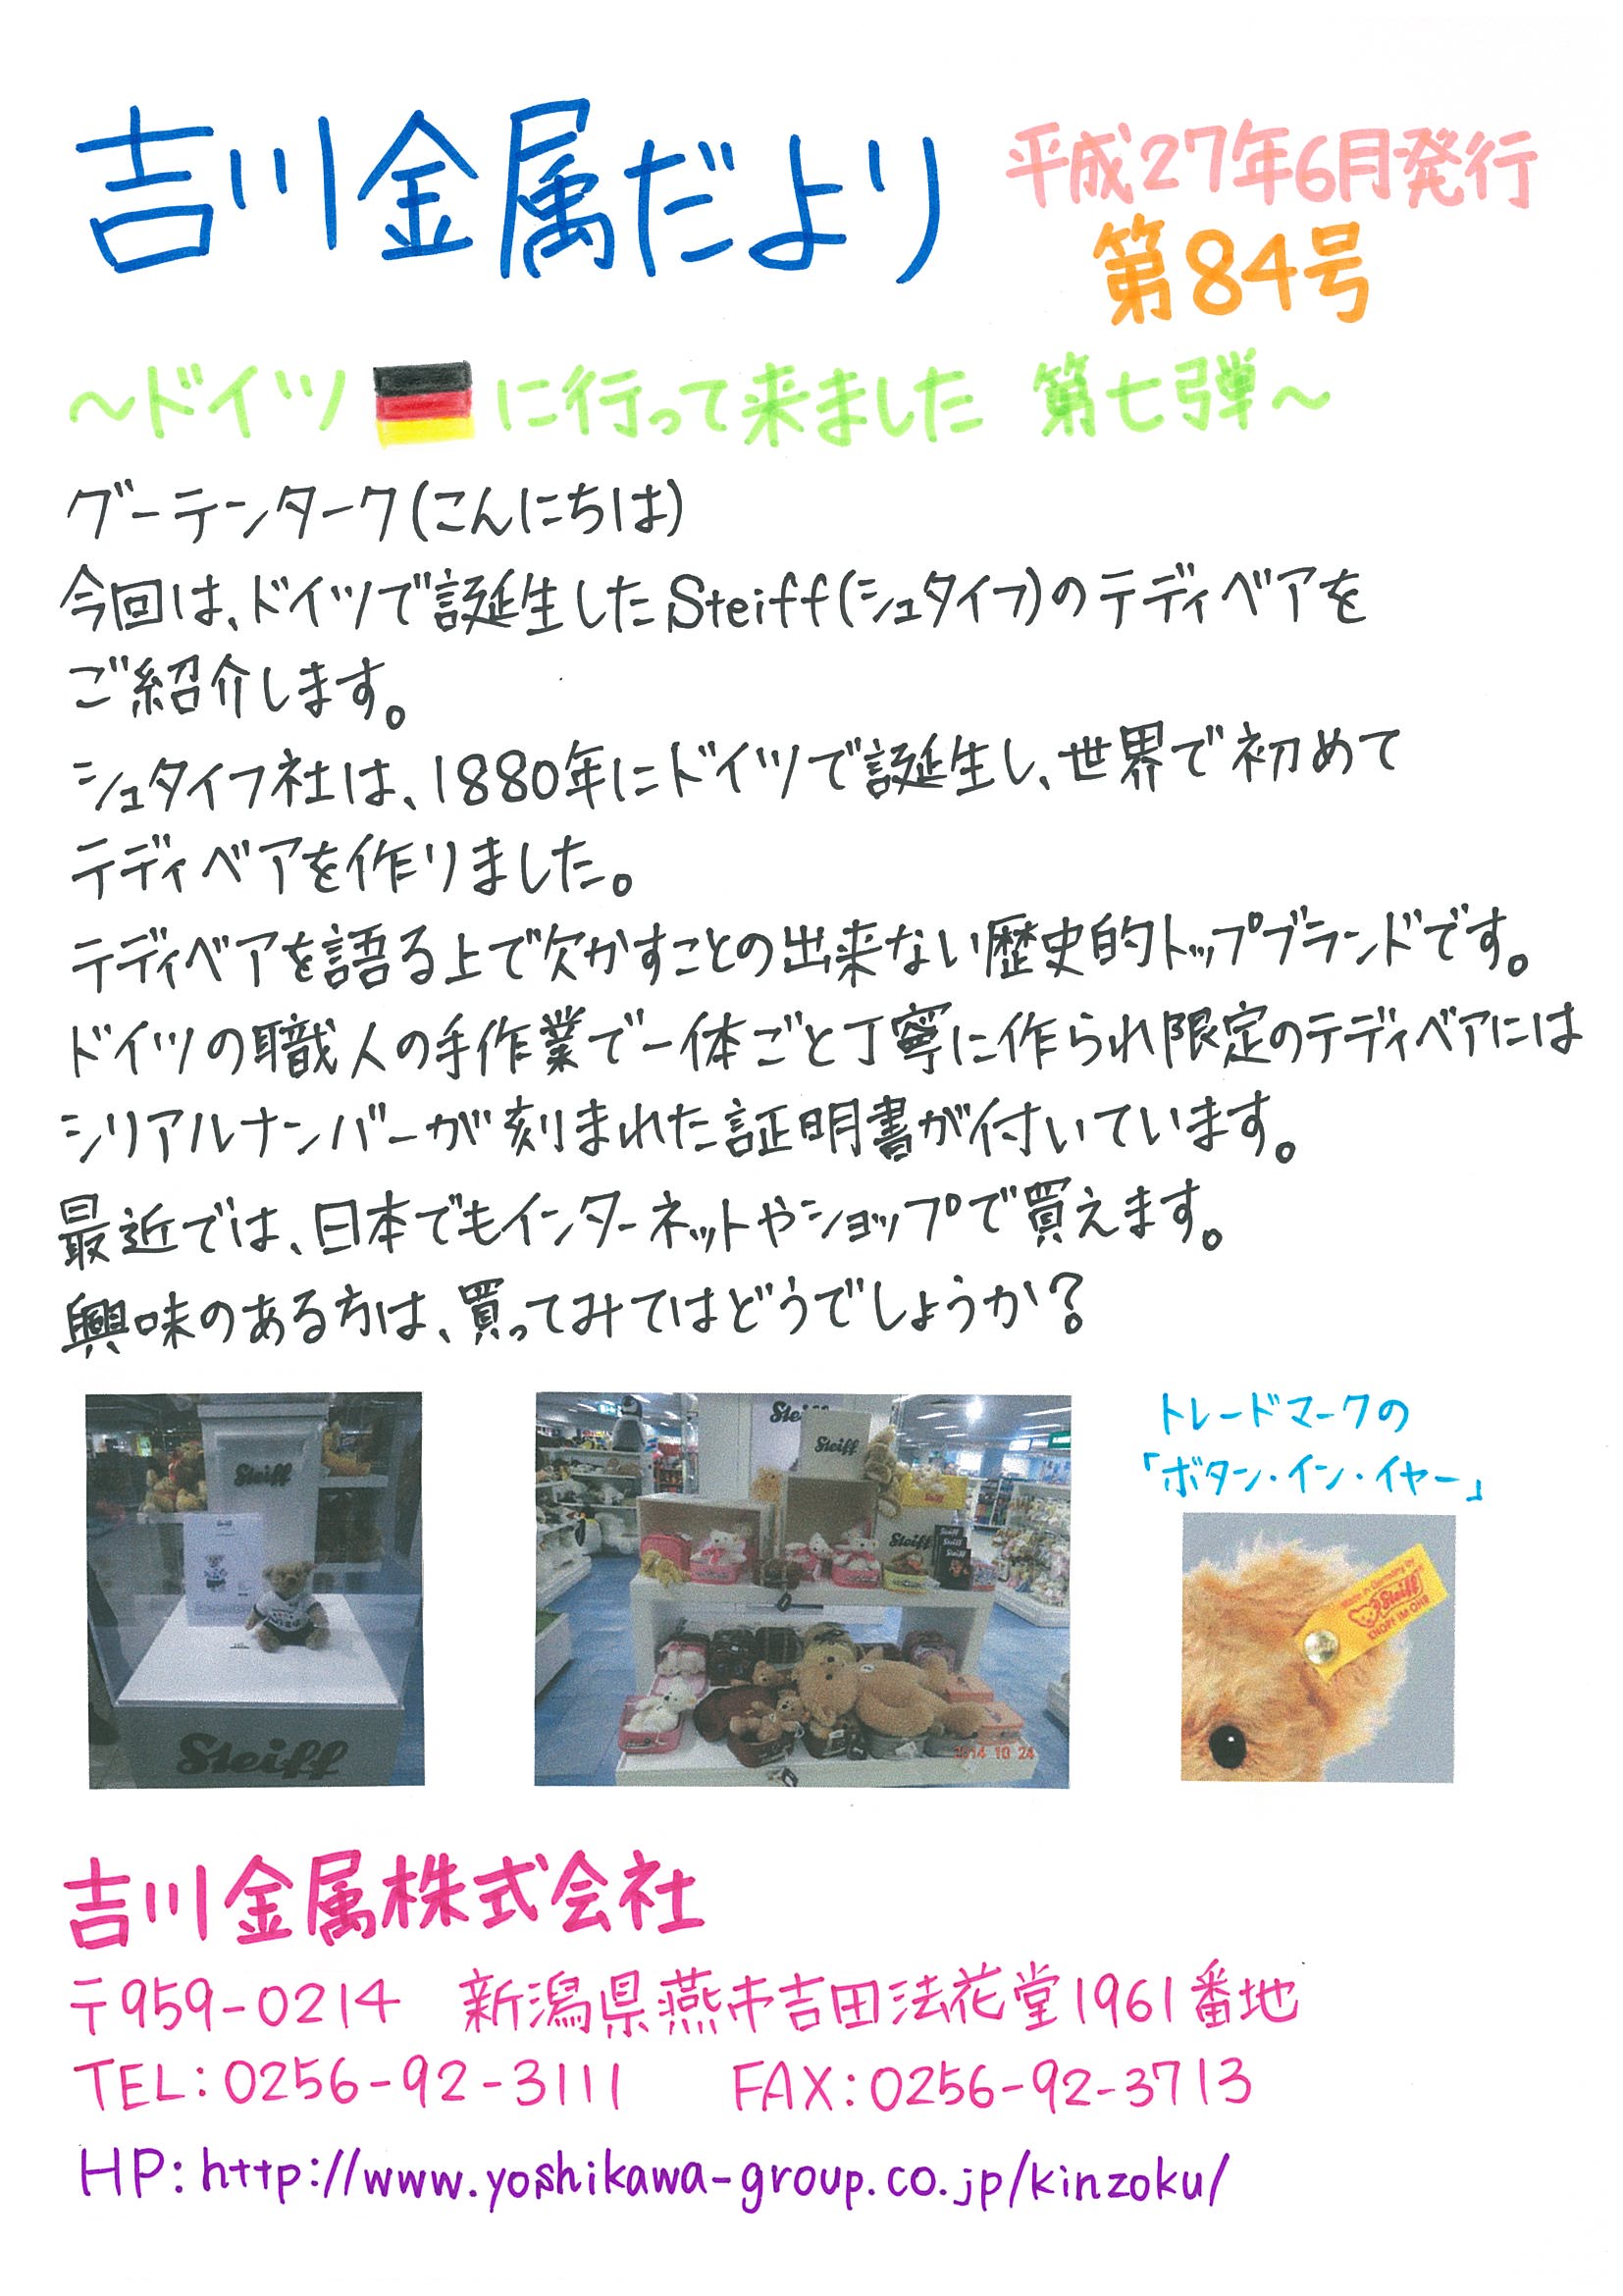 吉川金属だより
平成27年6月発行
第84号
～ドイツ に行って来ました 第七弾～
グーテンターク(こんにちは)
今回は、ドイツで誕生したSteiff(シュタイフ)のテディベアを
ご紹介します。
シュタイフ社は、1880年にドイツで誕生し、世界で初めて
テディベアを作りました。
テディベアを語る上で欠かすことの出来ない歴史的トップブランドです。
ドイツの職人の手作業で一体ごと丁寧に作られ限定のテディベアには
シリアルナンバーが刻まれた証明書が付いています。
最近では、日本でもインターネットやショップで買えます。
興味のある方は、買ってみてはどうでしょうか？
Steiff
Steiff
Steiff
Steiff
Steiff
2014 10 24
トレードマークの
「ボタン・イン・イヤー」
Made in Germany by
Steiff
KNOPF IM OHR
吉川金属株式会社
〒959-0214 新潟県燕市吉田法花堂1961番地
TEL:0256-92-3111 FAX:0256-92-3713
HP:http://www.yoshikawa-group.co.jp/kinzoku/